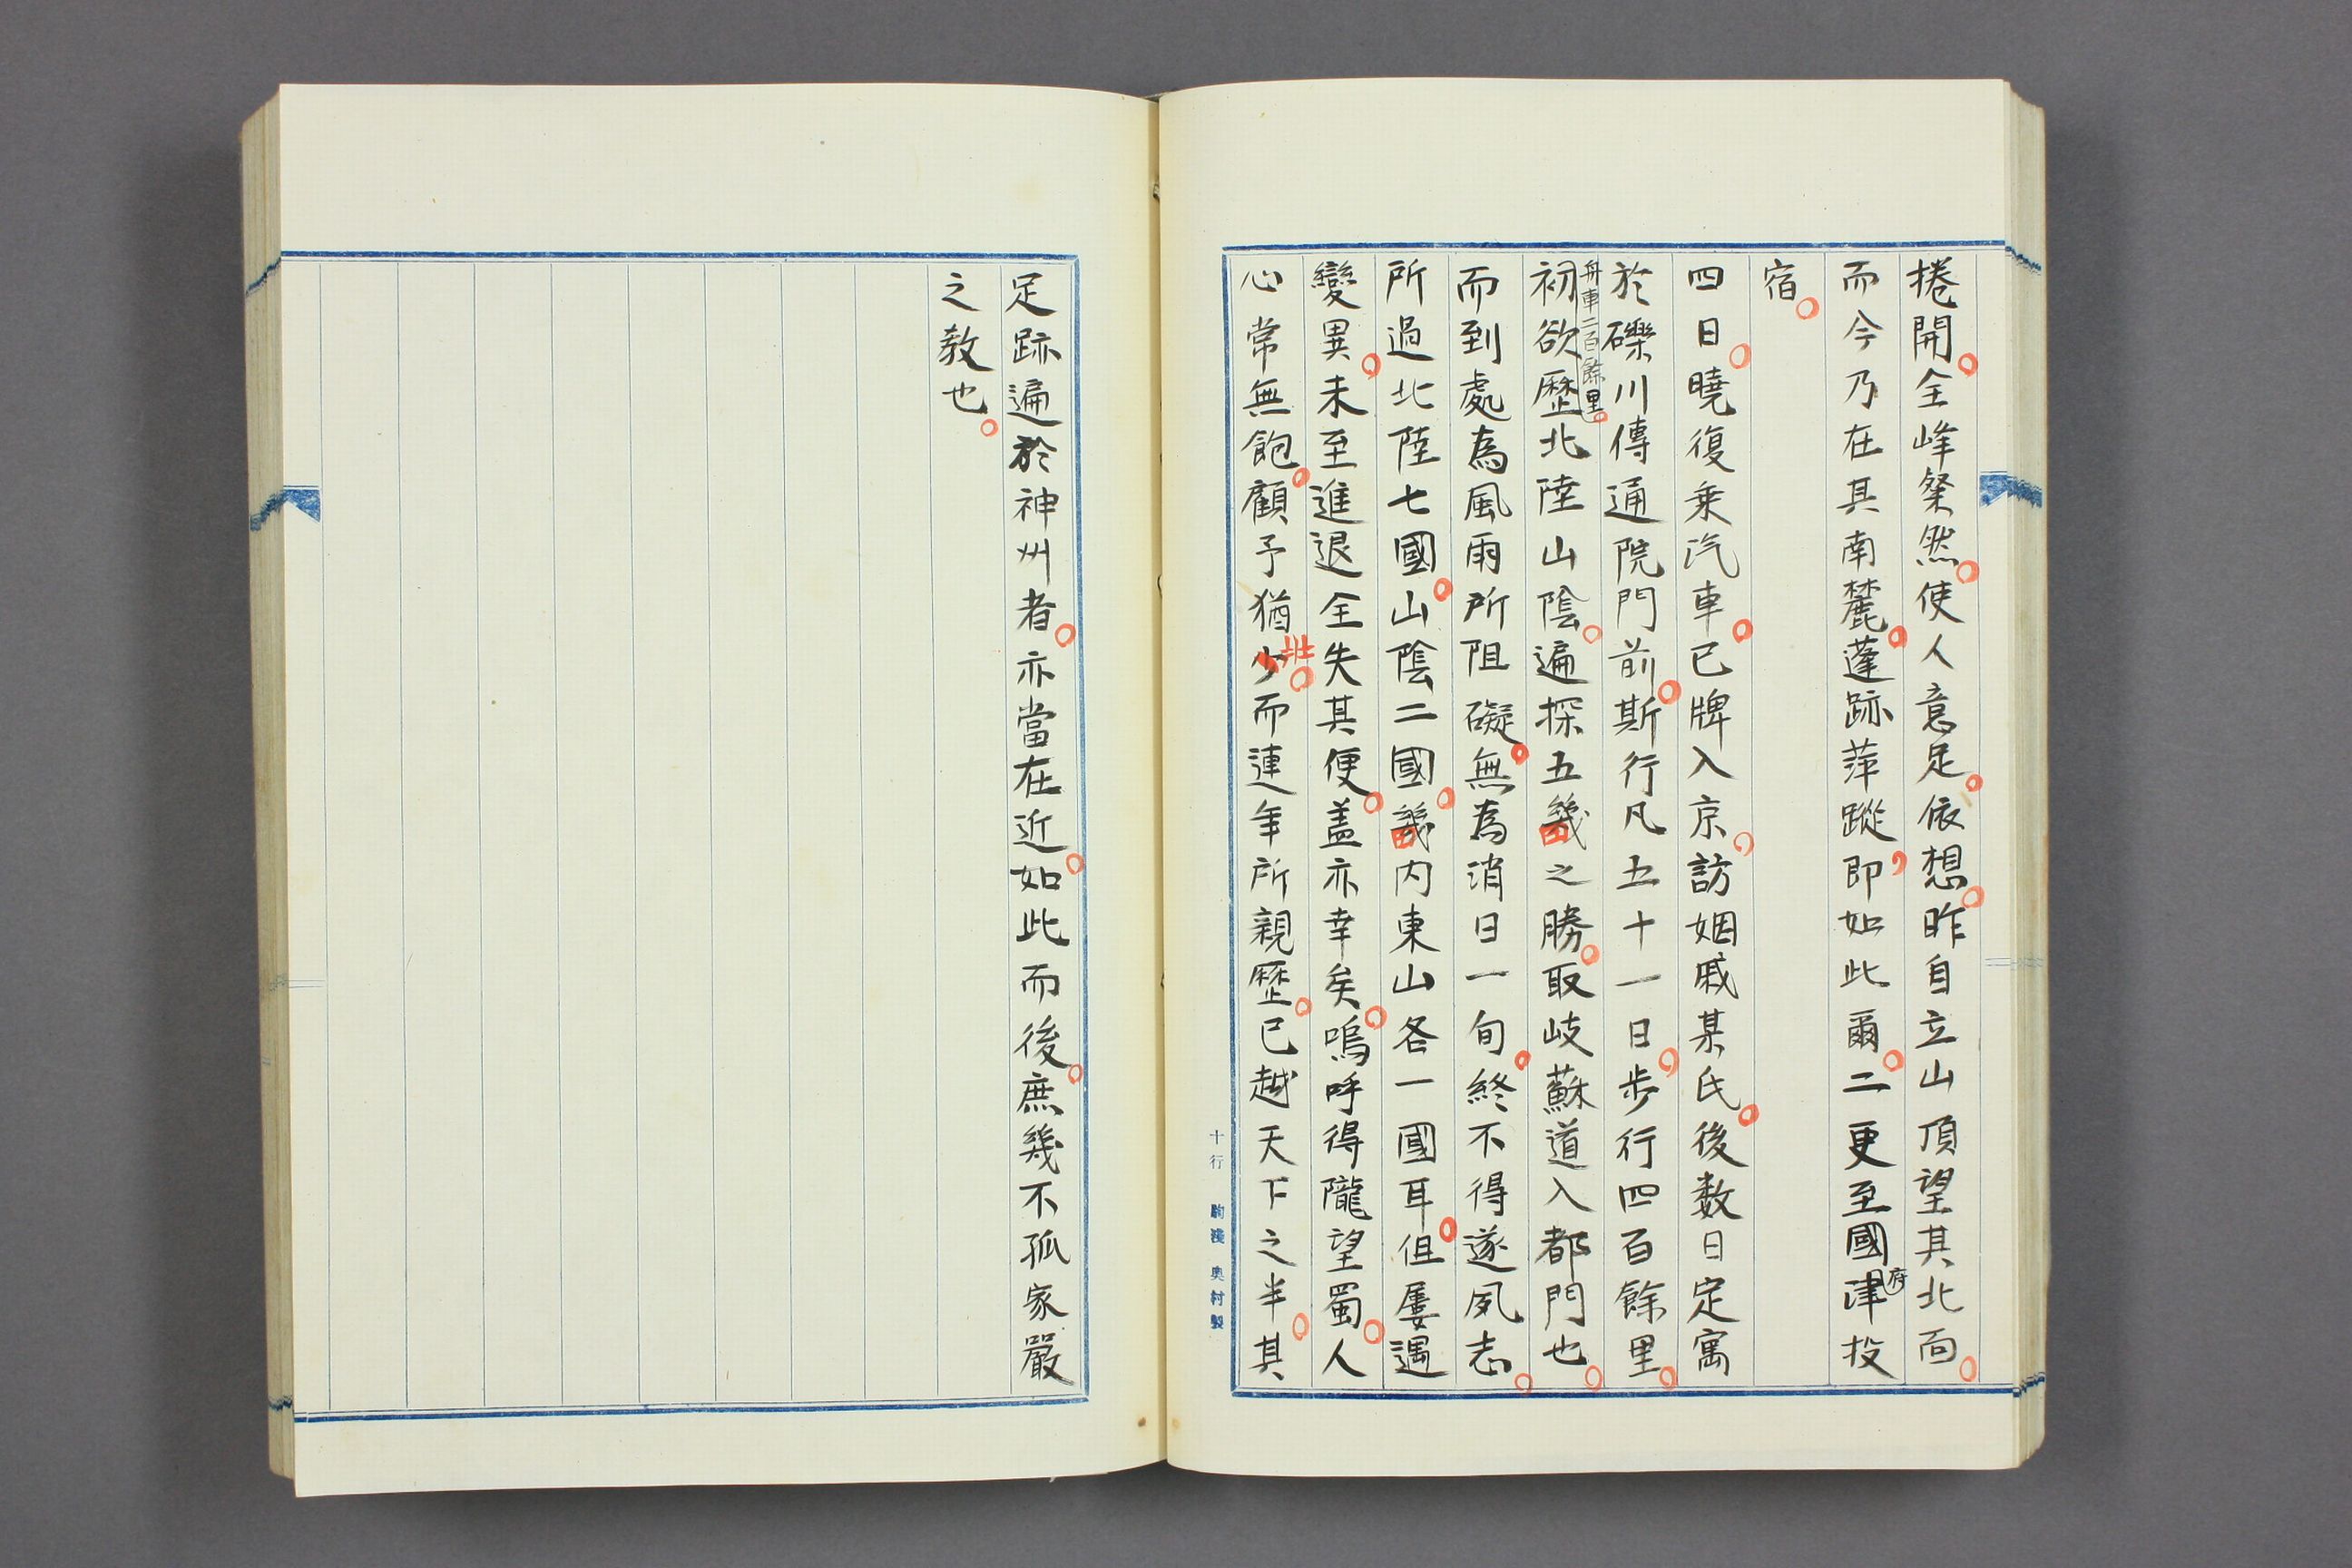 捲開。全峰粲然。使人意足。依想。昨自立山頂望其北面。
而今乃在其南麓。蓬跡萍蹤，即如此爾。二更至國府津投
宿。
四日。曉復乗汽車。已牌入京，訪姻戚某氏。後数日定寓
於礫川傳通院門前。斯行凡五十一日，步行四百餘里。
舟車二百餘里。
初欲歷北陸山陰。遍探五畿之勝。取岐蘇道入都門也。
而到處為風雨所阻礙。無為消日一旬。終不得遂夙志。
所過北陸七國。山陰二國。畿内東山各一國耳。但屢遇
變異。未至進退全失其便。盖亦幸矣。嗚呼得隴望蜀。人
心常無飽。顧予猶少壯。而連年所親歷。已越天下之半。其
足跡遍於神州者。亦當在近。如此而後。庶幾不孤家嚴
之教也。
十行 駒込 奥村製